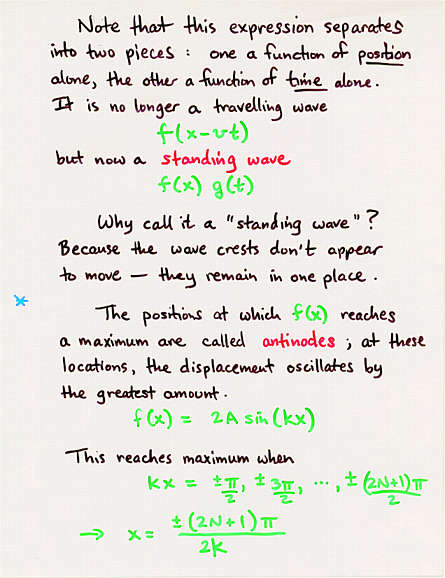 Note that this expression separates
into two pieces : one a function of position
alone, the other a function of time alone.
It is no longer a travelling wave
f(x-vt)
but now a standing wave
f(x) g(t)
Why call it a "standing wave"?
Because the wave crests don't appear
to move — they remain in one place.
*
The positions at which f(x) reaches
a maximum are called antinodes ; at these
locations, the displacement oscillates by
the greatest amount.
f(x) = 2A sin(kx)
This reaches maximum when
kx = ±π/2, ±3π/2, ..., ±(2N+1)π/2
→ x = ±(2N+1)π/2k